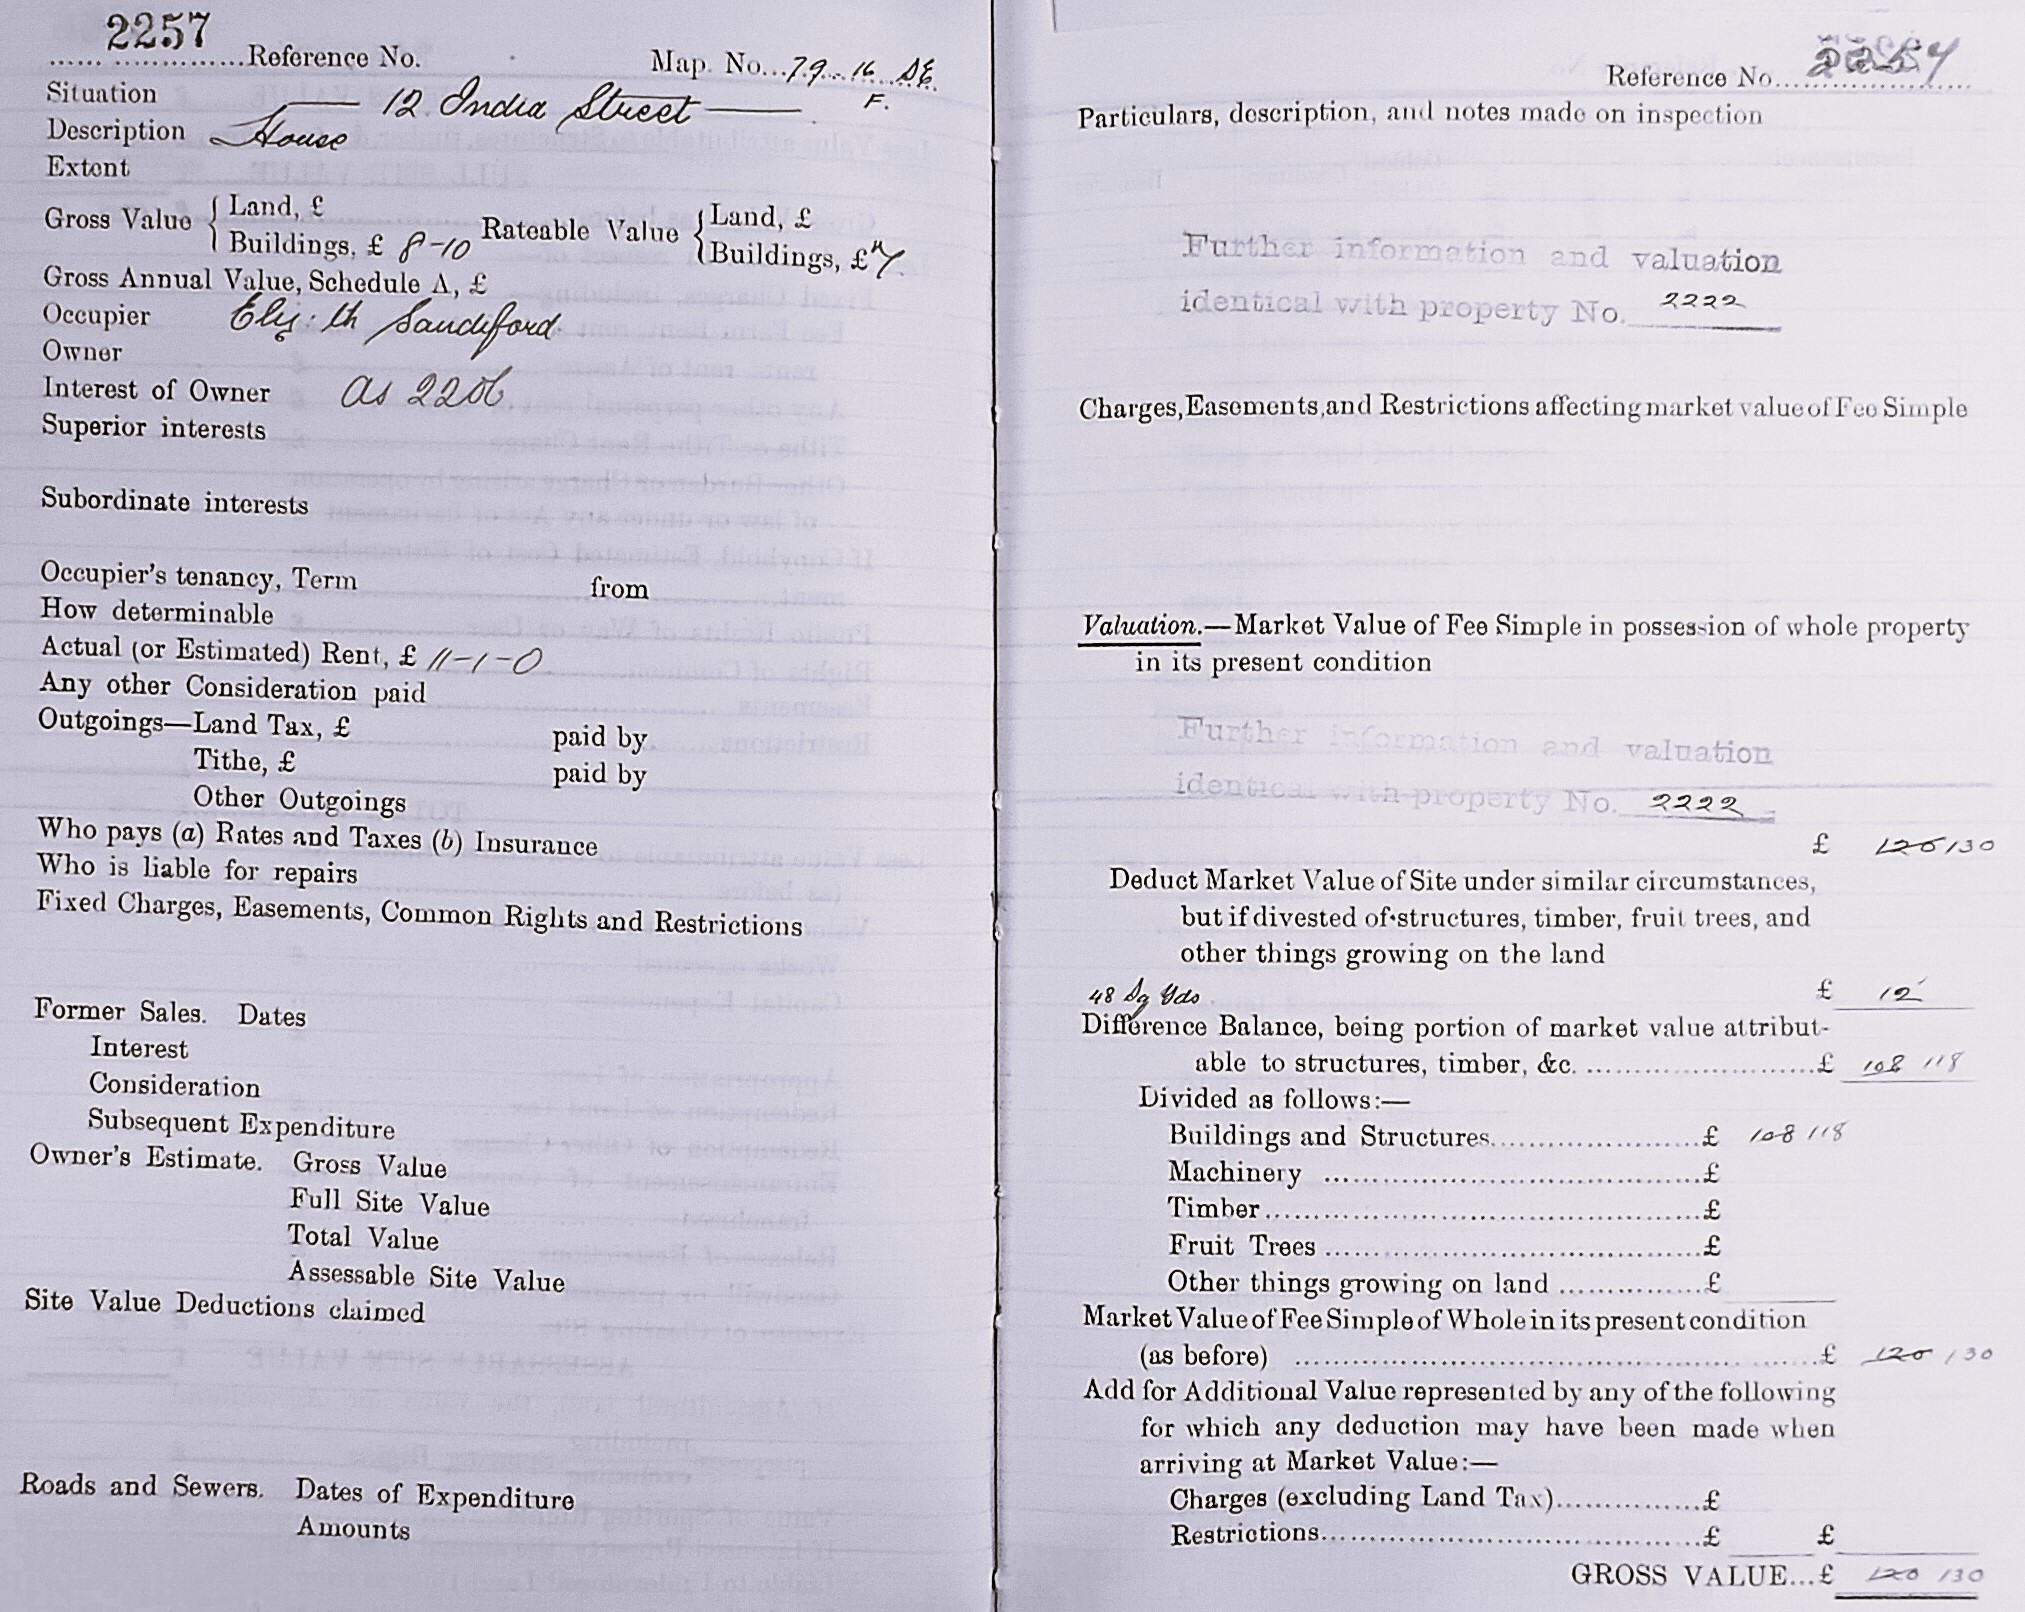 2257
...... ...............Reference No.
Map. No...79...16...S.E.
F.
Situation 12 India Street
Description House
Extent
Gross Value { Land, £
Buildings, £ 8-10
Rateable Value { Land, £
Buildings, £ 7
Gross Annual Value, Schedule A, £
Occupier Eliz:th Sandiford
Owner
Interest of Owner as 2206
Superior interests
Subordinate interests
Occupier's tenancy, Term from
How determinable
Actual (or Estimated) Rent, £ 11-1-0
Any other Consideration paid
Outgoings—Land Tax, £ paid by
Tithe, £ paid by
Other Outgoings
Who pays (a) Rates and Taxes (b) Insurance
Who is liable for repairs
Fixed Charges, Easements, Common Rights and Restrictions
Former Sales. Dates
Interest
Consideration
Subsequent Expenditure
Owner's Estimate. Gross Value
Full Site Value
Total Value
Assessable Site Value
Site Value Deductions claimed
Roads and Sewers. Dates of Expenditure
Amounts
Reference No. 2257
Particulars, description, and notes made on inspection
Further information and valuation
identical with property No. 2222
Charges, Easements, and Restrictions affecting market value of Fee Simple
Valuation.—Market Value of Fee Simple in possession of whole property
in its present condition
Further information and valuation
identical with property No. 2222
£ 120 130
Deduct Market Value of Site under similar circumstances,
but if divested of structures, timber, fruit trees, and
other things growing on the land
48 Sq Yds £ 12
Difference Balance, being portion of market value attribut-
able to structures, timber, &c. ........................£ 108 118
Divided as follows:—
Buildings and Structures......................£ 108 118
Machinery .......................................£
Timber.............................................£
Fruit Trees .......................................£
Other things growing on land ...............£
Market Value of Fee Simple of Whole in its present condition
(as before) .......................................................£ 120 130
Add for Additional Value represented by any of the following
for which any deduction may have been made when
arriving at Market Value:—
Charges (excluding Land Tax)...............£
Restrictions.......................................£ £
GROSS VALUE...£ 120 130